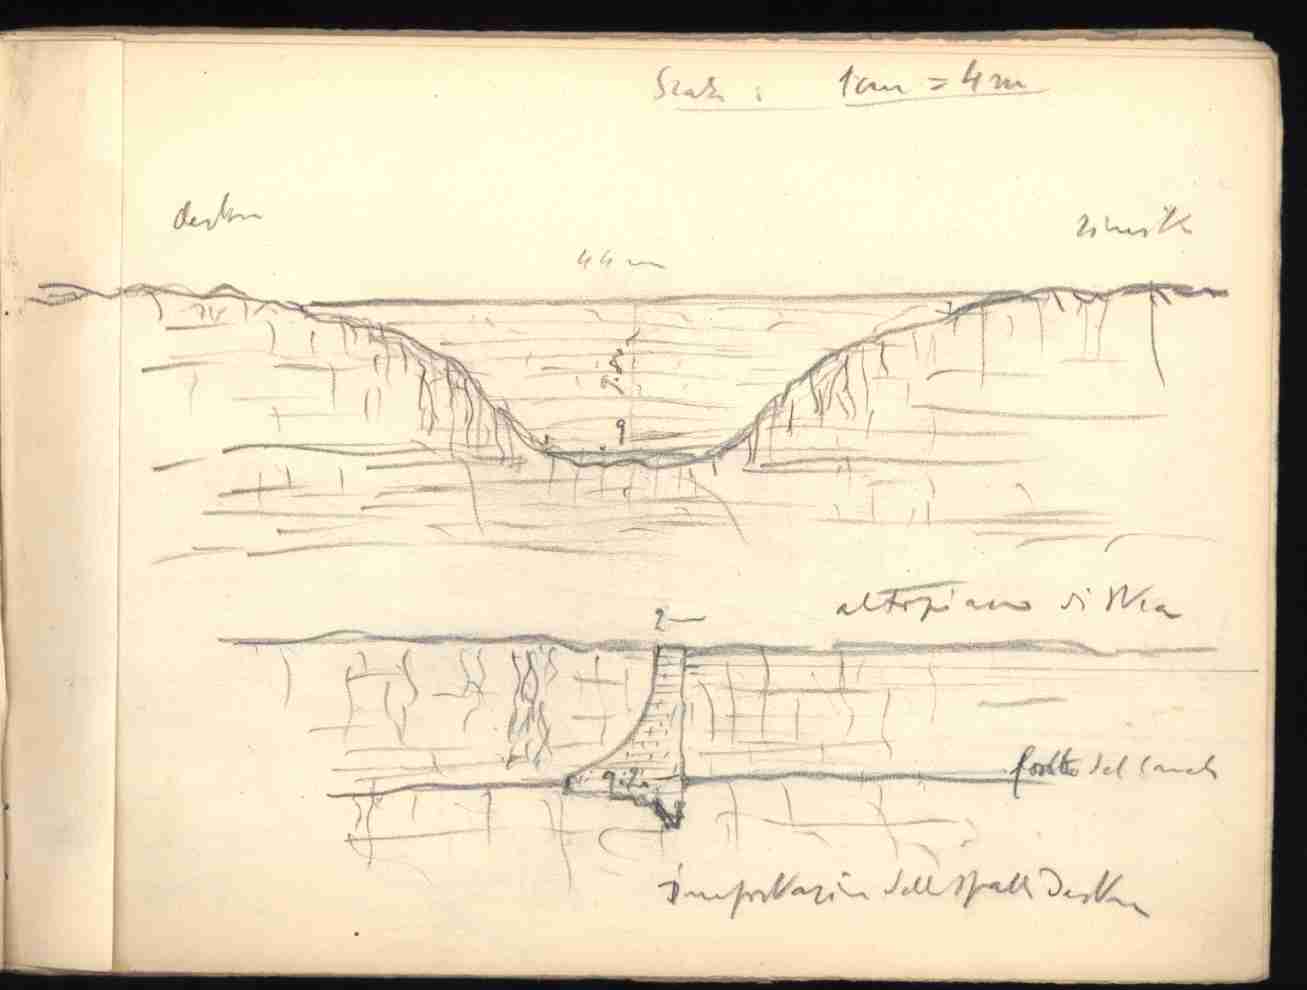 Scala : 1 cm = 4 m
destra
sinistra
44 m
9
altopiano di
2 m
fondo del canale
impostazione della spalla destra